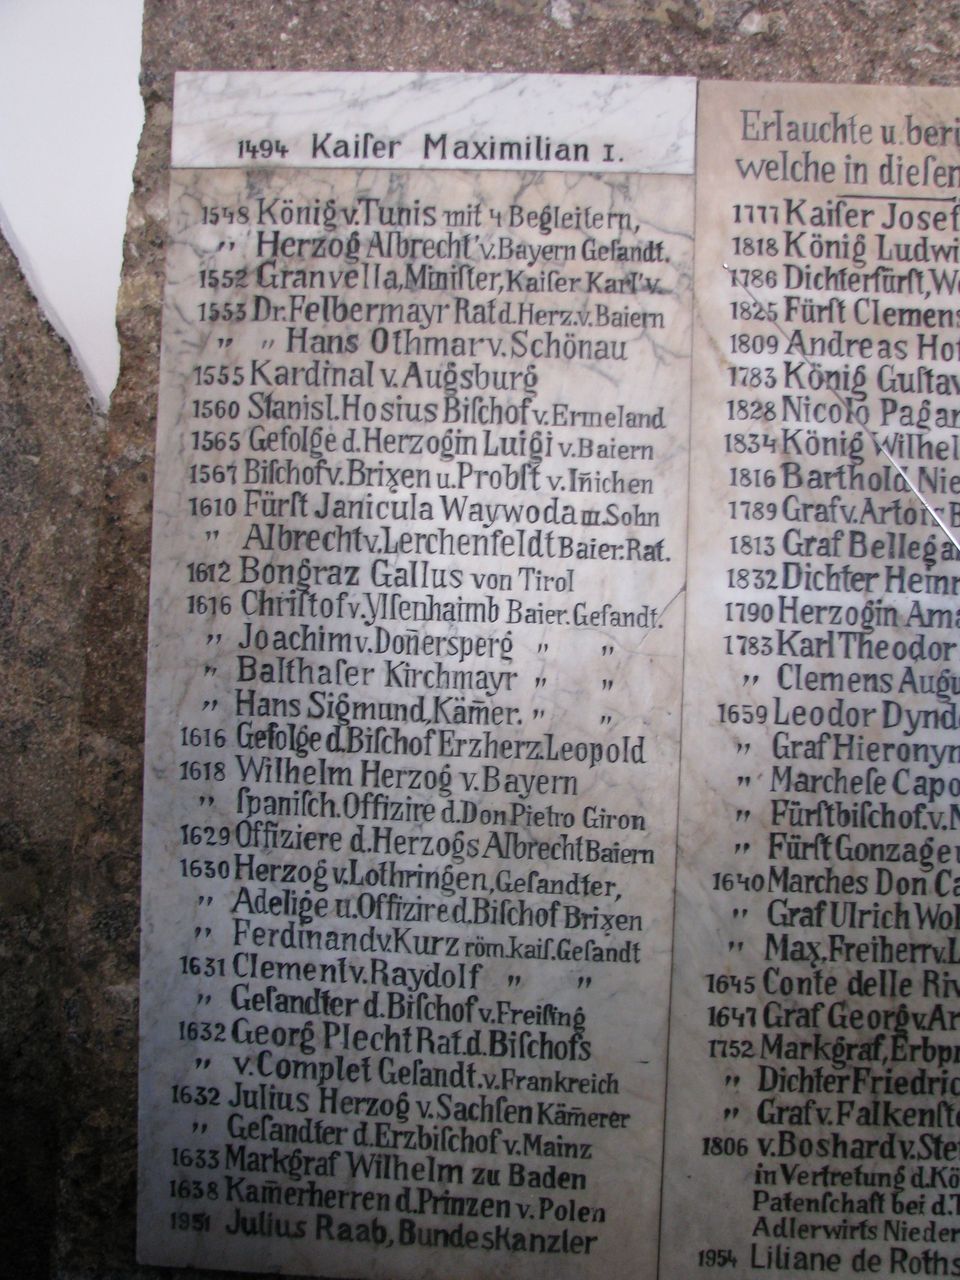 1494 Kaiſer Maximilian I.
1548 König v. Tunis mit 4 Begleitern,
〃 Herzog Albrecht v. Bayern Geſandt.
1552 Granvella, Miniſter, Kaiſer Karl v.
1553 Dr. Felbermayr Rat d. Herz. v. Baiern
〃 〃 Hans Othmar v. Schönau
1555 Kardinal v. Augsburg
1560 Stanisl. Hosius Biſchof v. Ermeland
1565 Gefolge d. Herzogin Luigi v. Baiern
1567 Biſchof v. Brixen u. Probſt v. Iñichen
1610 Fürſt Janicula Waywoda m. Sohn
〃 Albrecht v. Lerchenfeldt Baier. Rat.
1612 Bongraz Gallus von Tirol
1616 Chriſtof v. Ylſenhaimb Baier. Geſandt.
〃 Joachim v. Doñersperg 〃 〃
〃 Balthaſer Kirchmayr 〃 〃
〃 Hans Sigmund, Käm̄er. 〃 〃
1616 Gefolge d. Biſchof Erzherz. Leopold
1618 Wilhelm Herzog v. Bayern
〃 ſpaniſch. Offizire d. Don Pietro Giron
1629 Offiziere d. Herzogs Albrecht Baiern
1630 Herzog v. Lothringen, Geſandter,
〃 Adelige u. Offizire d. Biſchof Brixen
〃 Ferdinand v. Kurz röm. kaiſ. Geſandt
1631 Clement v. Raydolf 〃 〃
〃 Geſandter d. Biſchof v. Freiſing
1632 Georg Plecht Rat d. Biſchofs
〃 v. Complet Geſandt. v. Frankreich
1632 Julius Herzog v. Sachſen Käm̄erer
〃 Geſandter d. Erzbiſchof v. Mainz
1633 Markgraf Wilhelm zu Baden
1638 Kam̄erherren d. Prinzen v. Polen
1951 Julius Raab, Bundeskanzler
Erlauchte u.
welche in
1777 Kaiſer
1818 König
1786 Dichterfürſt,
1825 Fürſt
1809 Andreas
1783 König
1828 Nicolo
1834 König
1816 Barthold
1789 Graf v.
1813 Graf
1832 Dichter
1790 Herzogin
1783 Karl Theodor
〃 Clemens
1659 Leodor
〃 Graf
〃 Marcheſe
〃 Fürſtbiſchof. v.
〃 Fürſt Gonzage
1640 Marches Don
〃 Graf Ulrich
〃 Max. Freiherr v.
1645 Conte delle
1647 Graf Georg v.
1752 Markgraf,
〃 Dichter
〃 Graf v.
1806 v. Boshard v.
in Vertretung d.
Patenſchaft bei d.
Adlerwirts
1954 Liliane de